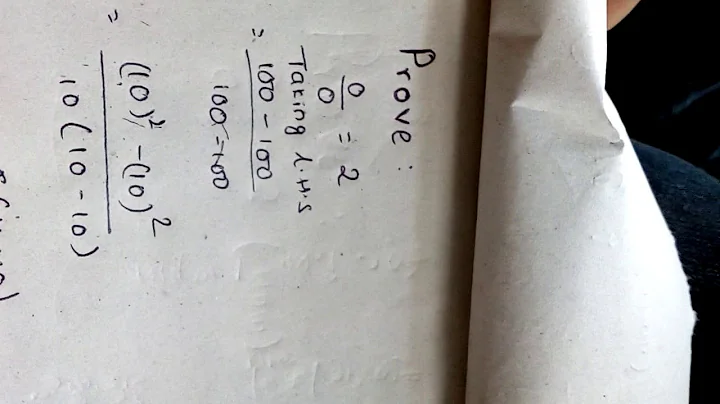 Prove :
0/0 = 2
Taking L.H.S
= 100 - 100
100 - 100
= (10)² - (10)²
10 (10 - 10)